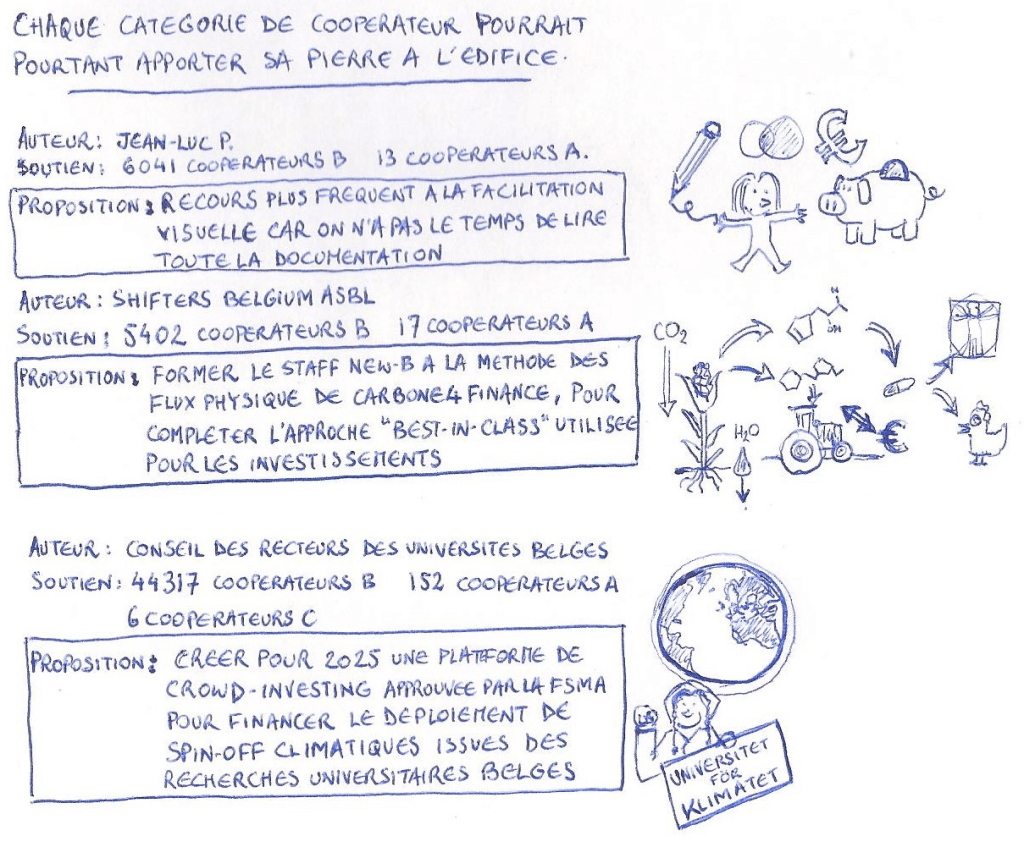 CHAQUE CATEGORIE DE COOPERATEUR POURRAIT
POURTANT APPORTER SA PIERRE A L'EDIFICE.
AUTEUR: JEAN-LUC P.
SOUTIEN: 6041 COOPERATEURS B 13 COOPERATEURS A.
PROPOSITION: RECOURS PLUS FREQUENT A LA FACILITATION
VISUELLE CAR ON N'A PAS LE TEMPS DE LIRE
TOUTE LA DOCUMENTATION
AUTEUR: SHIFTERS BELGIUM ASBL
SOUTIEN: 5402 COOPERATEURS B 17 COOPERATEURS A
PROPOSITION: FORMER LE STAFF NEW-B A LA METHODE DES
FLUX PHYSIQUE DE CARBONE4 FINANCE, POUR
COMPLETER L'APPROCHE "BEST-IN-CLASS" UTILISEE
POUR LES INVESTISSEMENTS
CO2
H2O
N
OH
€
AUTEUR: CONSEIL DES RECTEURS DES UNIVERSITES BELGES
SOUTIEN: 44317 COOPERATEURS B 152 COOPERATEURS A
6 COOPERATEURS C
PROPOSITION: CREER POUR 2025 UNE PLATEFORME DE
CROWD-INVESTING APPROUVEE PAR LA FSMA
POUR FINANCER LE DEPLOIEMENT DE
SPIN-OFF CLIMATIQUES ISSUES DES
RECHERCHES UNIVERSITAIRES BELGES
UNIVERSITET
FÖR
KLIMATET